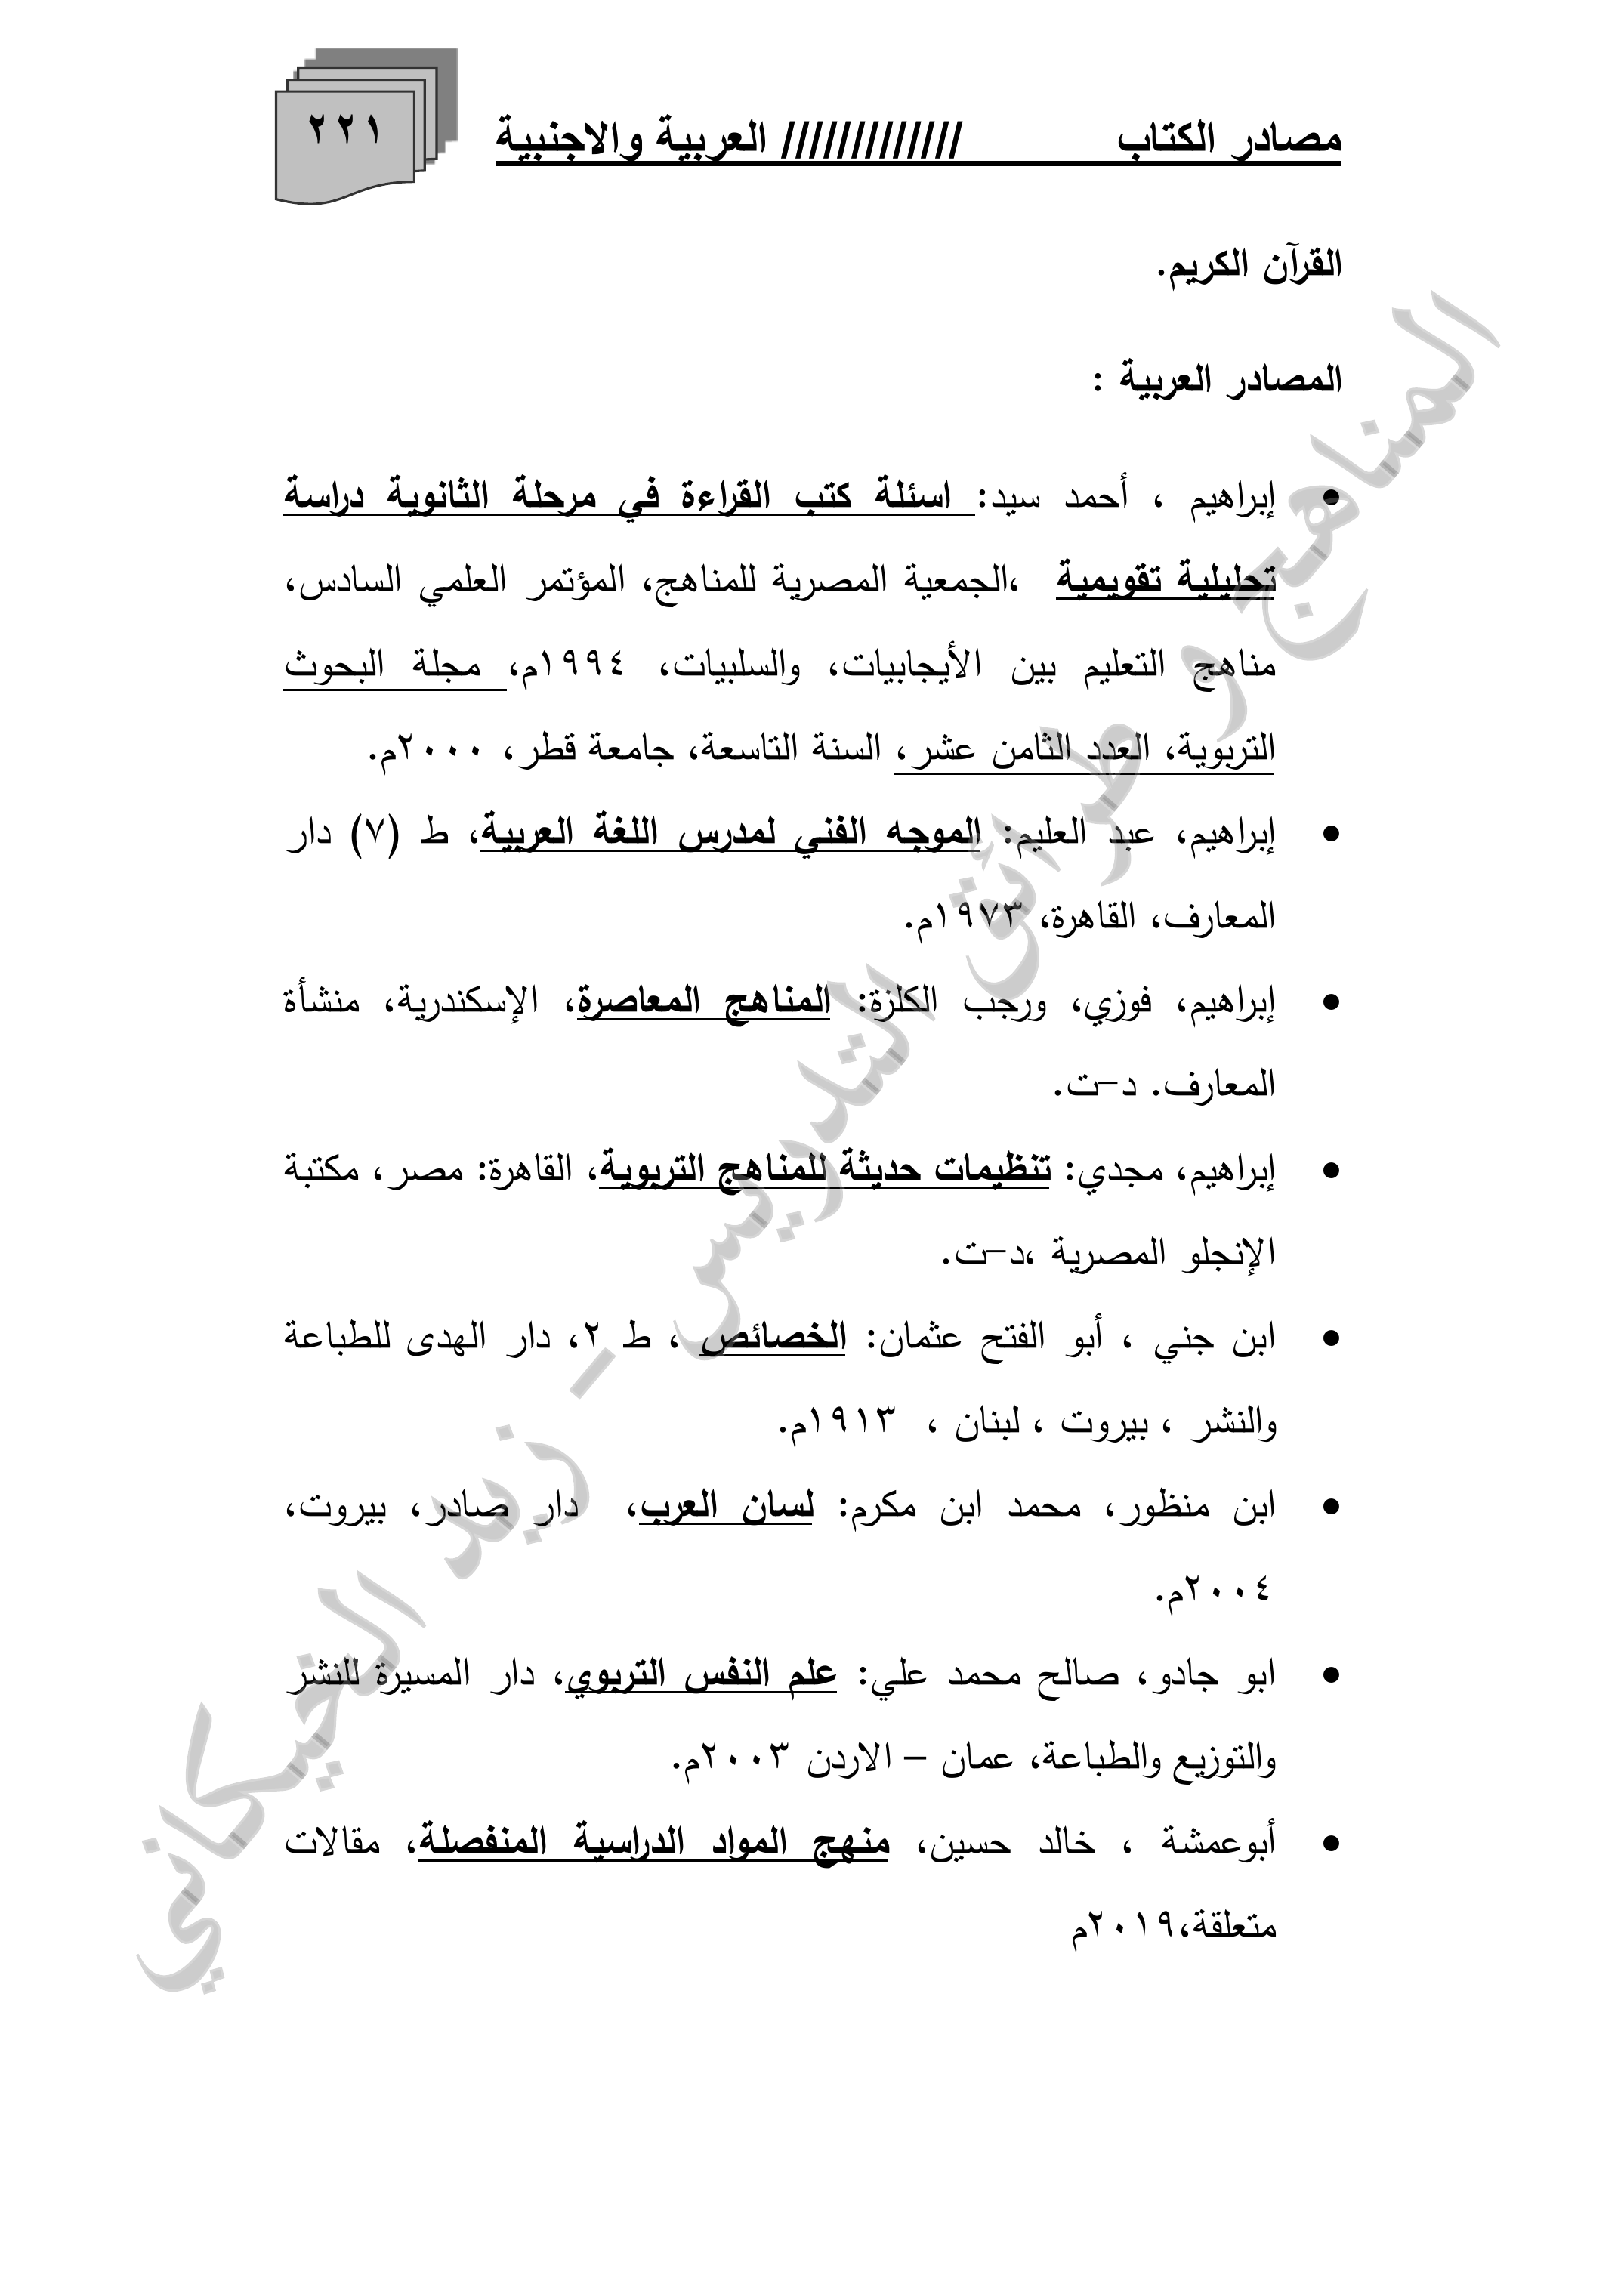 مصادر الكتاب ///////////// العربية والاجنبية
٢٢١
القرآن الكريم.
المصادر العربية :
• إبراهيم ، أحمد سيد: اسئلة كتب القراءة في مرحلة الثانوية دراسة
تحليلية تقويمية ،الجمعية المصرية للمناهج، المؤتمر العلمي السادس،
مناهج التعليم بين الأيجابيات، والسلبيات، ١٩٩٤م، مجلة البحوث
التربوية، العدد الثامن عشر، السنة التاسعة، جامعة قطر، ٢٠٠٠م.
• إبراهيم، عبد العليم: الموجه الفني لمدرس اللغة العربية، ط (٧) دار
المعارف، القاهرة، ١٩٧٣م.
• إبراهيم، فوزي، ورجب الكلزة: المناهج المعاصرة، الإسكندرية، منشأة
المعارف. د–ت.
• إبراهيم، مجدي: تنظيمات حديثة للمناهج التربوية، القاهرة: مصر، مكتبة
الإنجلو المصرية ،د–ت.
• ابن جني ، أبو الفتح عثمان: الخصائص ، ط ٢، دار الهدى للطباعة
والنشر ، بيروت ، لبنان ، ١٩١٣م.
• ابن منظور، محمد ابن مكرم: لسان العرب، دار صادر، بيروت،
٢٠٠٤م.
• ابو جادو، صالح محمد علي: علم النفس التربوي، دار المسيرة للنشر
والتوزيع والطباعة، عمان – الاردن ٢٠٠٣م.
• أبوعمشة ، خالد حسين، منهج المواد الدراسية المنفصلة، مقالات
متعلقة،٢٠١٩م
المناهج و طرائق التدريس - زيد الخيكاني